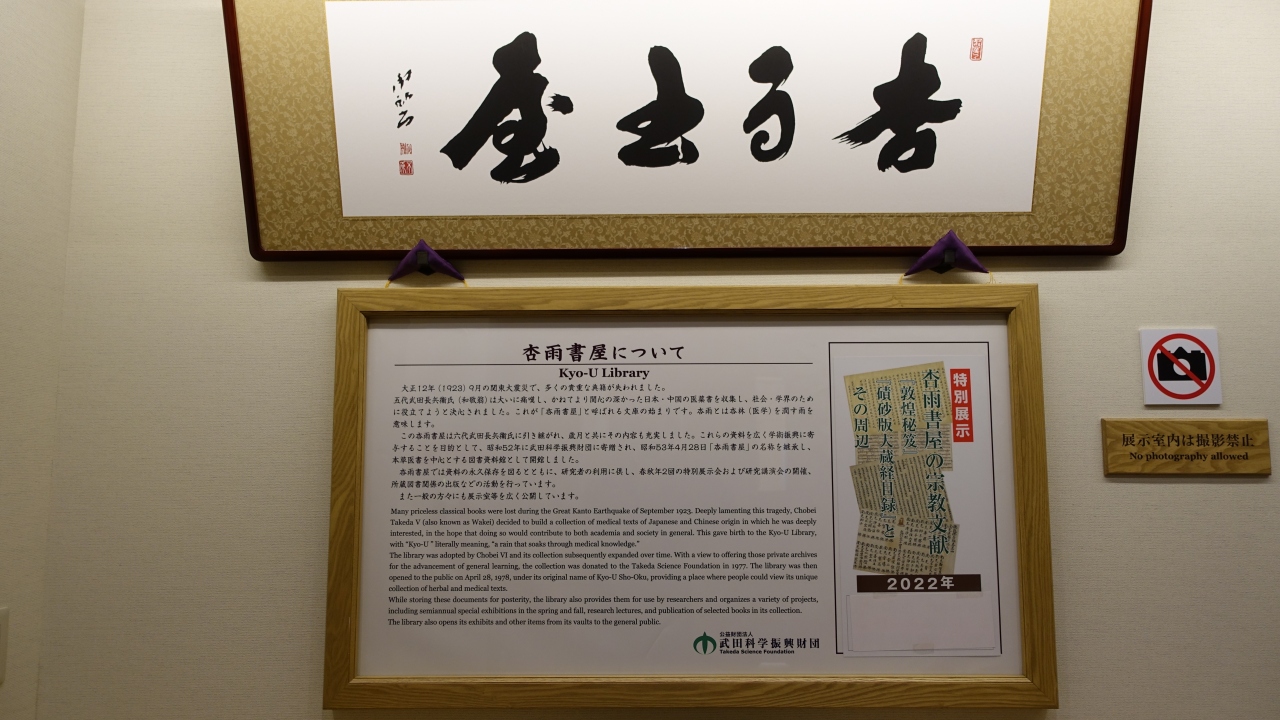 杏雨書屋
杏雨書屋について
Kyo-U Library
大正12年(1923)9月の関東大震災で、多くの貴重な典籍が失われました。
五代武田長兵衞氏(和敬翁)は大いに痛嘆し、かねてより関心の深かった日本・中国の医薬書を収集し、社会・学界のため
に役立てようと決心されました。これが「杏雨書屋」と呼ばれる文庫の始まりです。杏雨とは杏林(医学)を潤す雨を
意味します。
この杏雨書屋は六代武田長兵衞氏に引き継がれ、歳月と共にその内容も充実しました。これらの資料を広く学術振興に寄
与することを目的として、昭和52年に武田科学振興財団に寄贈され、昭和53年4月28日「杏雨書屋」の名称を継承し、
本草医書を中心とする図書資料館として開館しました。
杏雨書屋では資料の永久保存を図るとともに、研究者の利用に供し、春秋年2回の特別展示会および研究講演会の開催、
所蔵図書関係の出版などの活動を行っています。
また一般の方々にも展示室等を広く公開しています。
Many priceless classical books were lost during the Great Kanto Earthquake of September 1923. Deeply lamenting this tragedy, Chobei
Takeda V (also known as Wakei) decided to build a collection of medical texts of Japanese and Chinese origin in which he was deeply
interested, in the hope that doing so would contribute to both academia and society in general. This gave birth to the Kyo-U Library,
with "Kyo-U " literally meaning, "a rain that soaks through medical knowledge."
The library was adopted by Chobei VI and its collection subsequently expanded over time. With a view to offering those private archives
for the advancement of general learning, the collection was donated to the Takeda Science Foundation in 1977. The library was then
opened to the public on April 28, 1978, under its original name of Kyo-U Sho-Oku, providing a place where people could view its unique
collection of herbal and medical texts.
While storing these documents for posterity, the library also provides them for use by researchers and organizes a variety of projects,
including semiannual special exhibitions in the spring and fall, research lectures, and publication of selected books in its collection.
The library also opens its exhibits and other items from its vaults to the general public.
公益財団法人
武田科学振興財団
Takeda Science Foundation
特別展示
杏雨書屋の宗教文献
『敦煌秘笈』
『磧砂版大蔵経目録』と
その周辺
2022年
展示室内は撮影禁止
No photography allowed